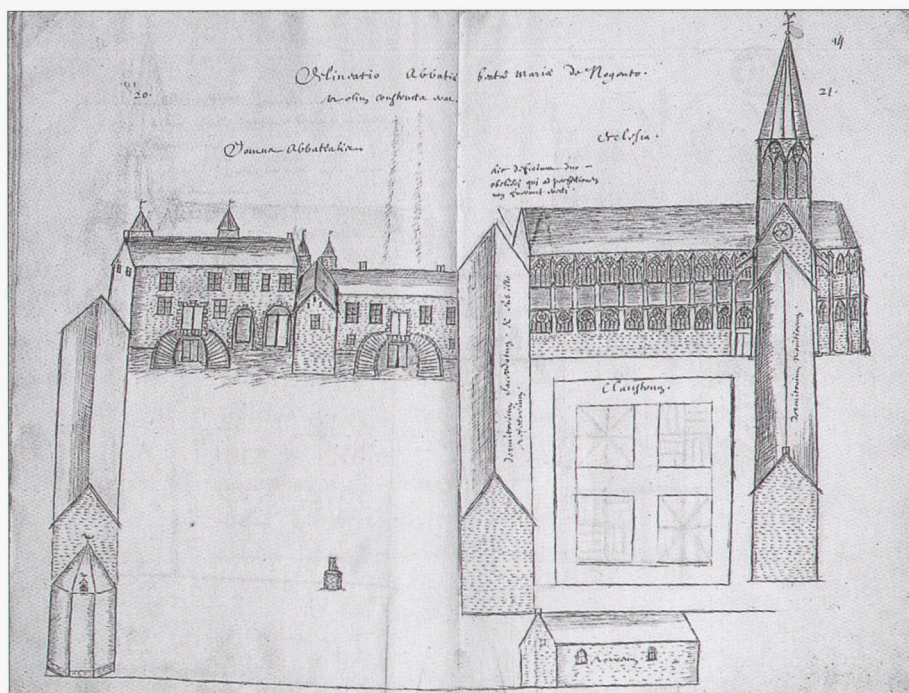 14
Delineatio Abbatiæ beatæ Mariæ de Nogento.
20.
21.
olim constructa erat
Domus Abbatialis
Ecclesia.
hic deficiunt duo
obelisci qui ad perfectionem
non fuerunt erecti.
dormitorium
Refectorium
Claustrum.
dormitorium